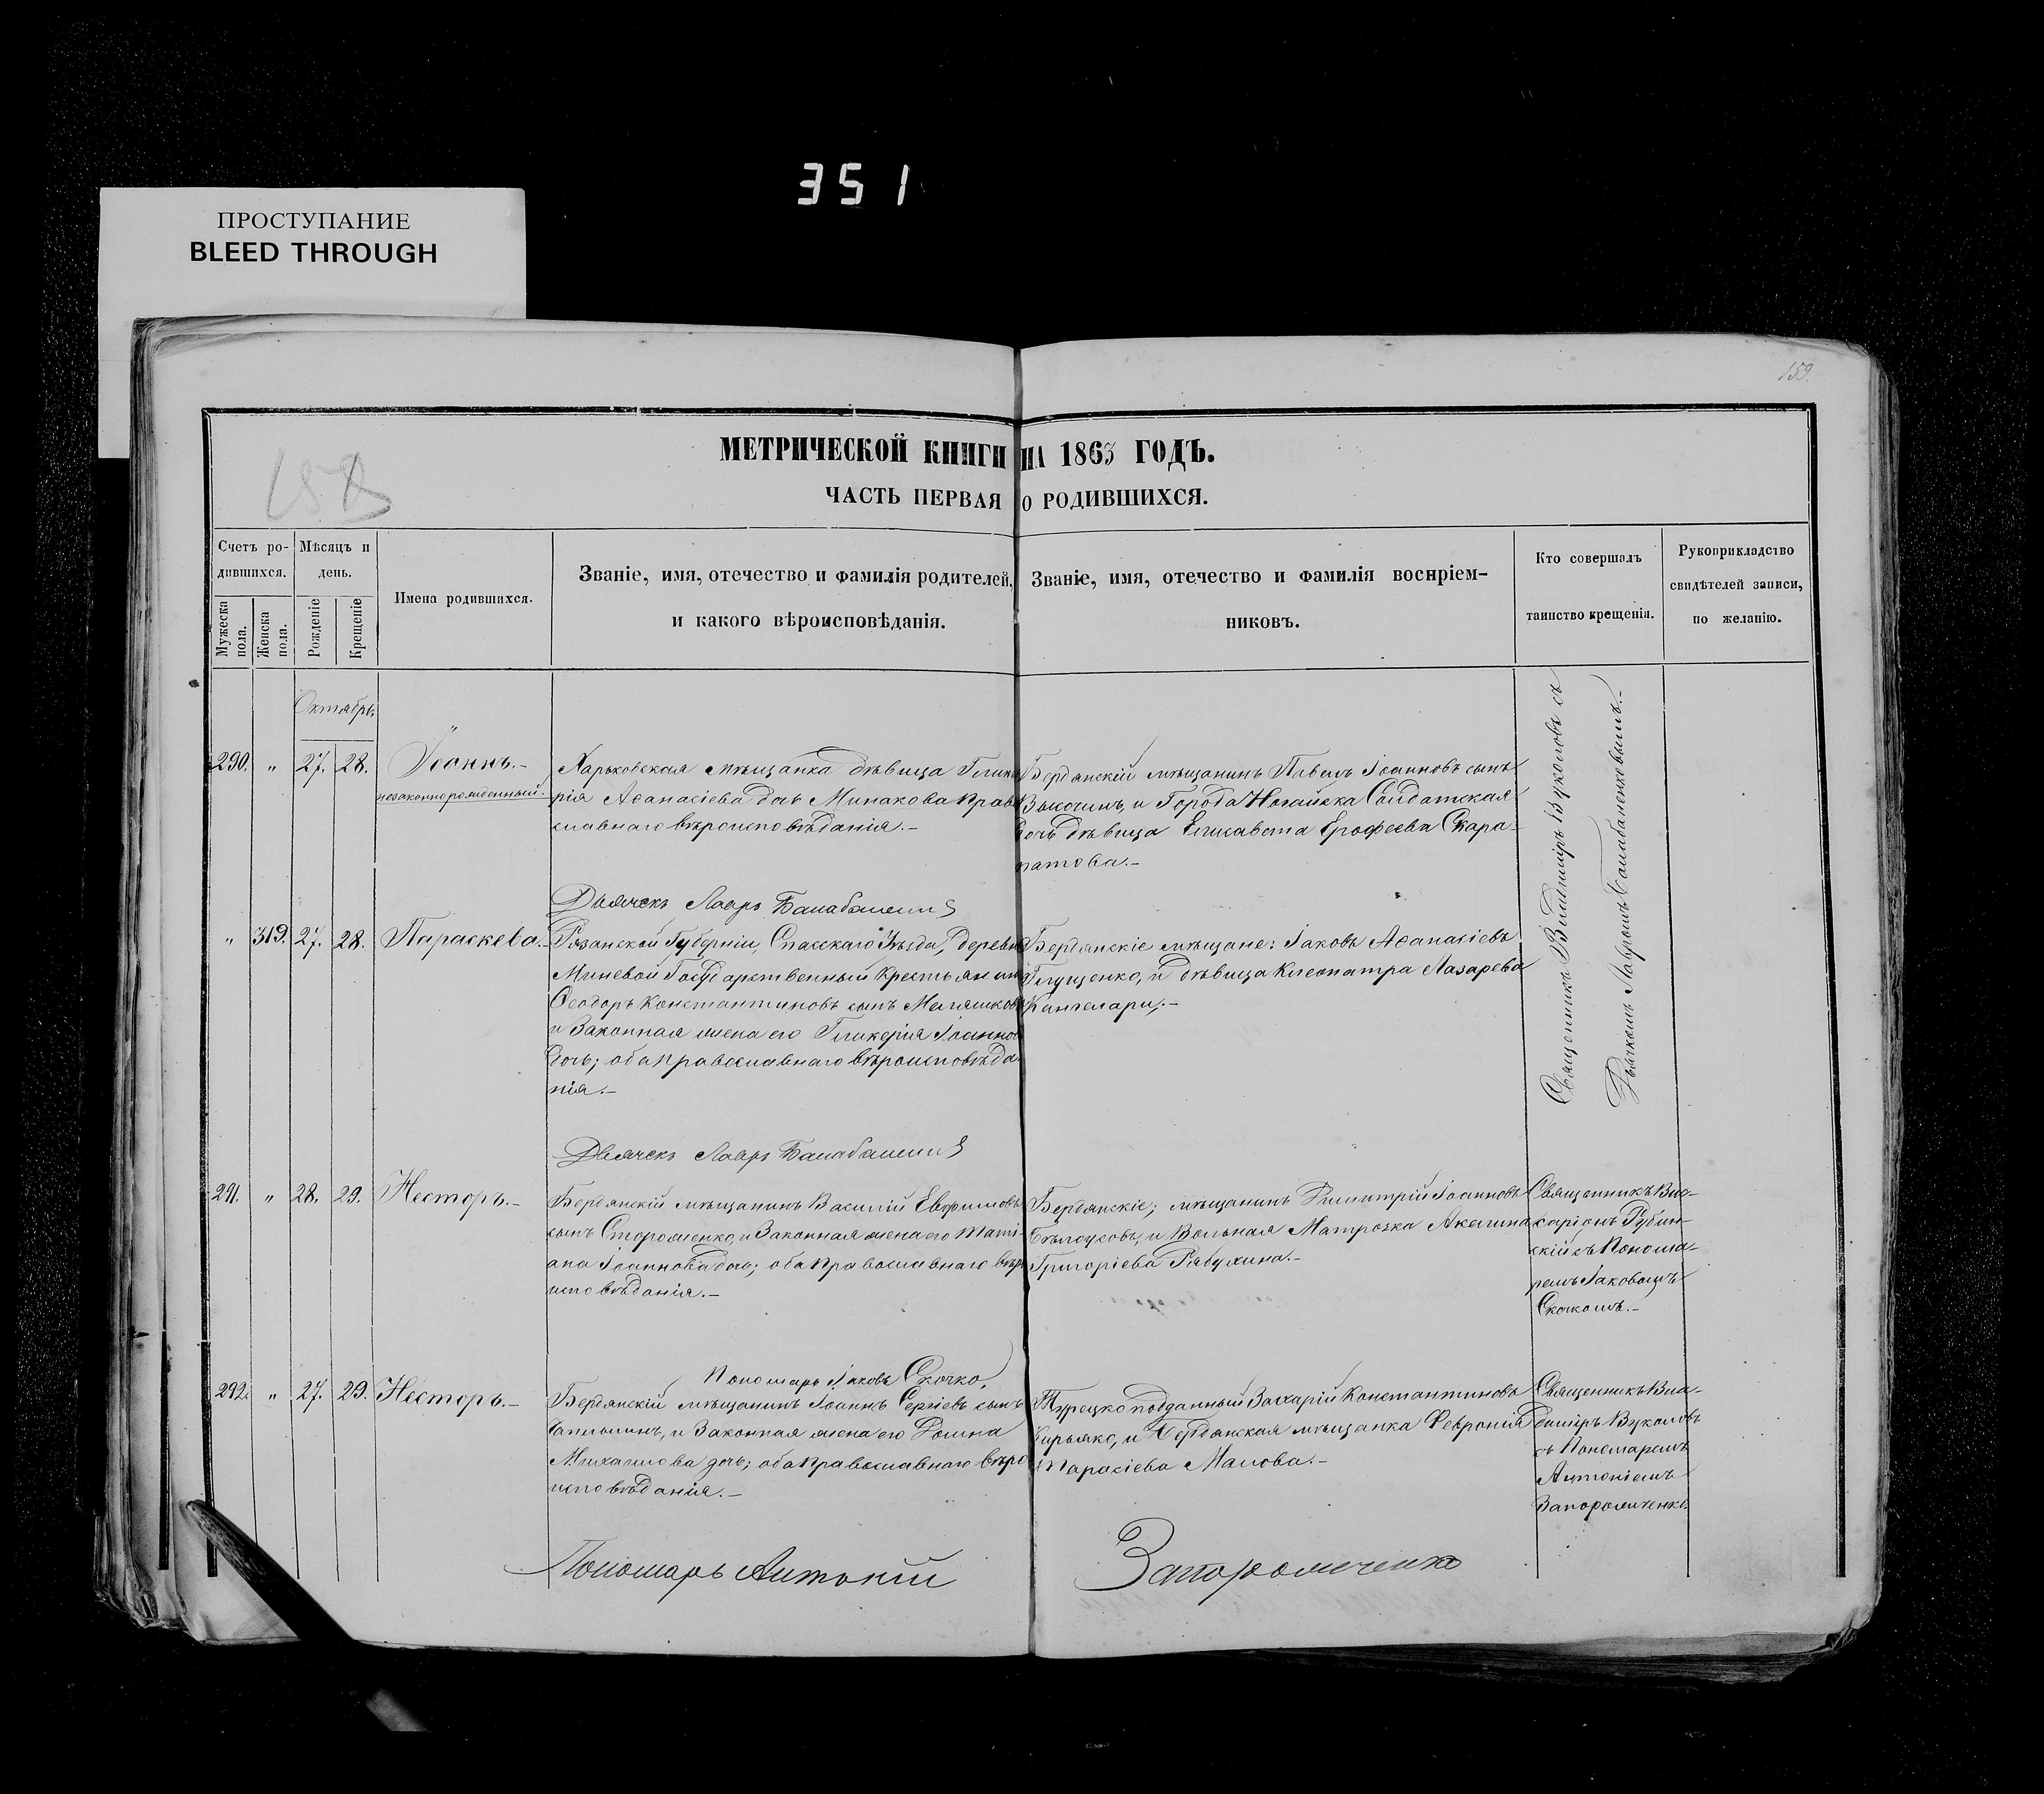 351
ПРОСТУПАНИЕ
BLEED THROUGH
159.
158
МЕТРИЧЕСКОЙ КНИГИ НА 1863 ГОДЪ.
ЧАСТЬ ПЕРВАЯ О РОДИВШИХСЯ.
Счетъ ро-
дившихся.
Мужеска пола.
Женска пола.
Мѣсяцъ и
день.
Рожденіе
Крещеніе
Имена родившихся.
Званіе, имя, отечество и фамилія родителей,
и какого вѣроисповѣданія.
Званіе, имя, отечество и фамилія воспріем-
никовъ.
Кто совершалъ
таинство крещенія.
Рукоприкладство
свидѣтелей записи,
по желанію.
Октябрь
290. " 27. 28. Іоаннъ.-
незаконнорожденный.
Харьковская мѣщанка дѣвица Глике
рія Аѳанасіева дочь Минакова Право
славнаго вѣроисповѣданія.-
Бердянскій мѣщанинъ Павелъ Іоанновъ сынъ
Высочинъ, и Города Ногайска Солдатская
дочь дѣвица Елисавета Ерофеева Скара-
патова.-
Священникъ Владиміръ Вуколовъ съ
Дьячкомъ Лавромъ Балабаненковымъ.-
Дьячекъ Лавръ
" 319. 27. 28. Параскева.-
Рязанской Губерніи, Спасскаго Уѣзда, деревни
Миневой Государственный Крестьянинъ
Ѳеодоръ Константиновъ сынъ
и Законная жена его Гликерія Іоаннова
дочь; оба православнаго вѣроисповѣда
нія.-
Бердянскіе мѣщане: Іаковъ Аѳанасіевъ
Глущенко, и дѣвица Клеопатра Лазарева
Кангелари;-
Дьячекъ Лавръ
291. " 28. 29. Несторъ.-
Бердянскій мѣщанинъ Василій Евфимовъ
сынъ Стороженко, и Законная жена его Таті-
ана Іоаннова дочь; оба православнаго вѣро
исповѣданія.-
Бердянскіе; мѣщанинъ Димитрій Іоанновъ
Бѣлоусовъ, и Вольная Матрозка Акелина
Григоріева Рябухина.-
Священникъ Вис-
саріонъ Рубин-
скій съ Понома-
ремъ Іаковомъ
Скочкомъ.-
Пономарь Іаковъ Скочко,
292. " 27. 29. Несторъ.-
Бердянскій мѣщанинъ Іоаннъ Сергіевъ сынъ
и Законная жена его Домна
Михаилова дочь; оба православнаго вѣро
исповѣданія.-
Турецкоподданный Захарій Константиновъ
Кирьяко, и Бердянская мѣщанка Февронія
Тарасіева Малова.-
Священникъ Вла-
диміръ Вуколовъ
съ Пономаремъ
Антоніемъ
Запорожченко
Пономарь Антоній Запорожченко